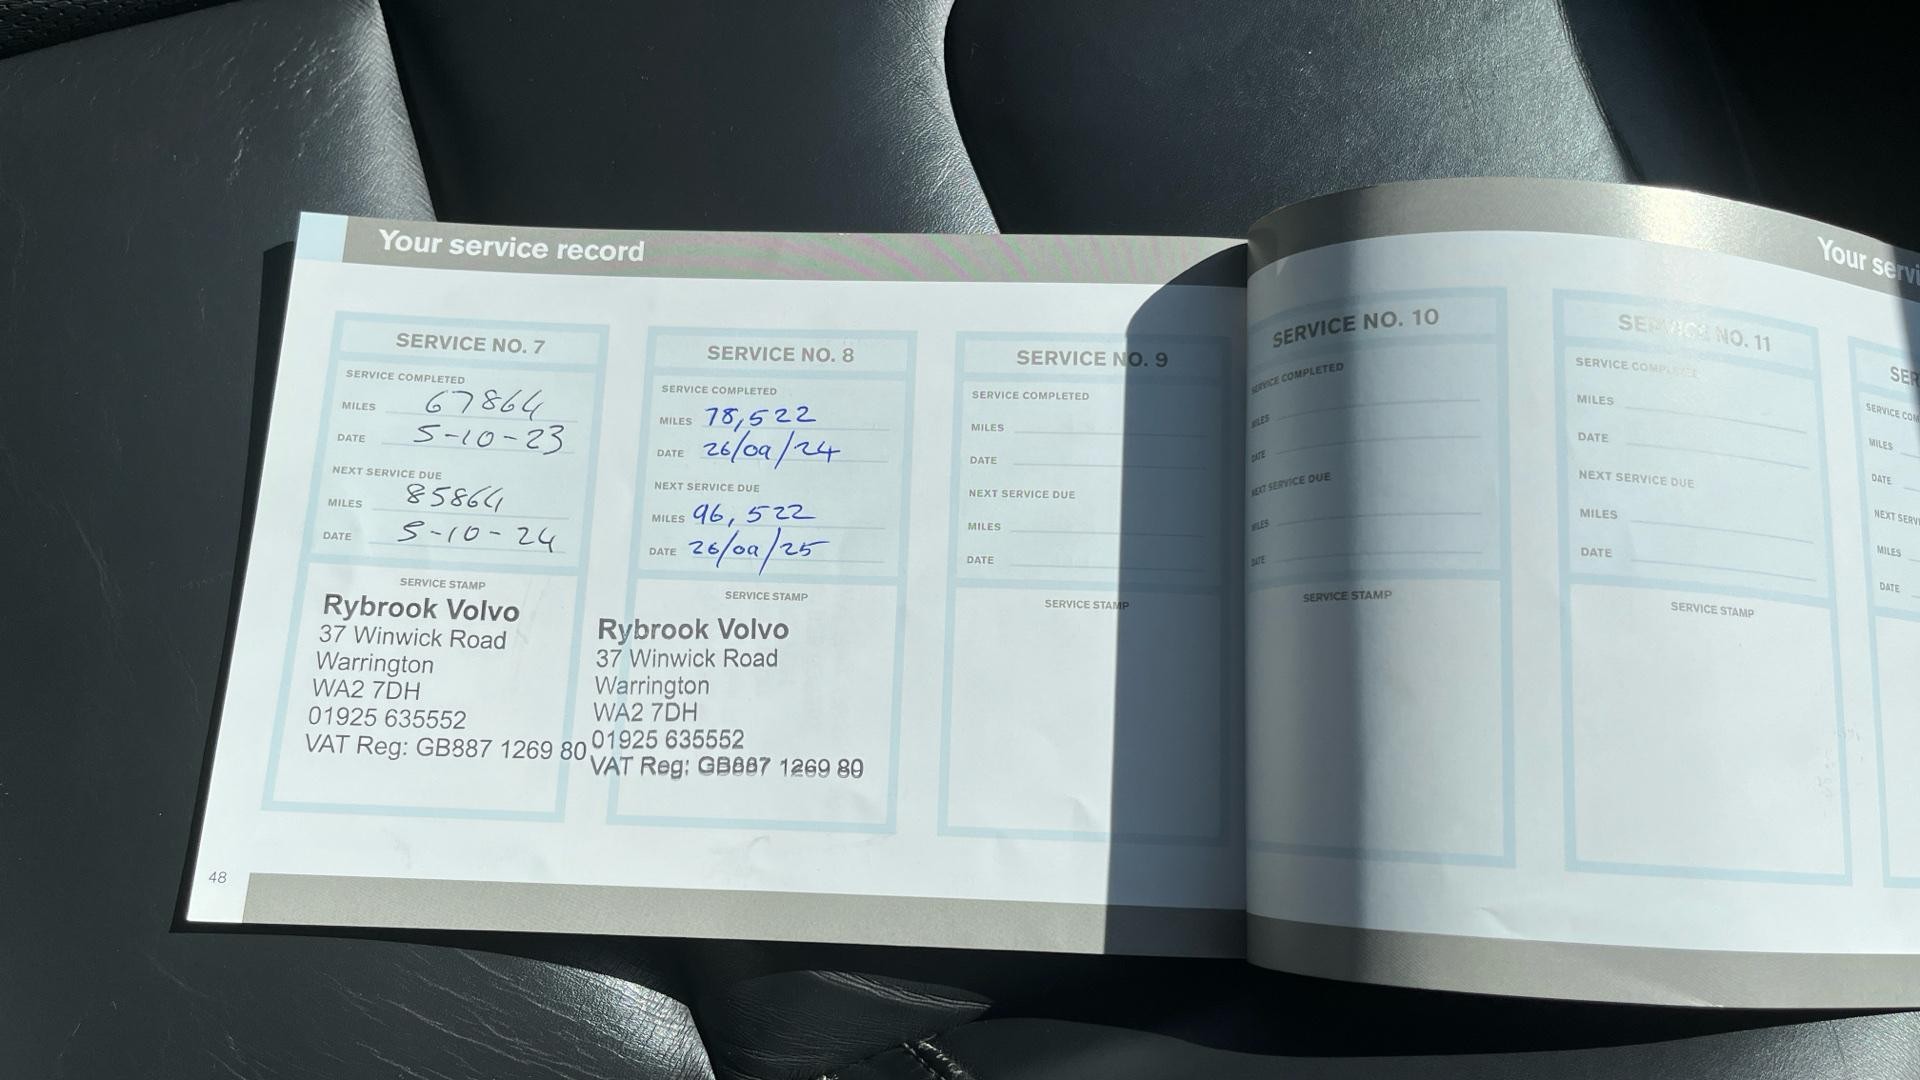 Your service record
SERVICE NO. 7
SERVICE COMPLETED
MILES 67864
DATE 5-10-23
NEXT SERVICE DUE
MILES 85864
DATE 5-10-24
SERVICE STAMP
Rybrook Volvo
37 Winwick Road
Warrington
WA2 7DH
01925 635552
VAT Reg: GB887 1269 80
SERVICE NO. 8
SERVICE COMPLETED
MILES 78,522
DATE 26/09/24
NEXT SERVICE DUE
MILES 96,522
DATE 26/09/25
SERVICE STAMP
Rybrook Volvo
37 Winwick Road
Warrington
WA2 7DH
01925 635552
VAT Reg: GB887 1269 80
SERVICE NO. 9
SERVICE COMPLETED
MILES
DATE
NEXT SERVICE DUE
MILES
DATE
SERVICE STAMP
48
Your servi
SERVICE NO. 10
SERVICE COMPLETED
MILES
DATE
NEXT SERVICE DUE
MILES
DATE
SERVICE STAMP
SERVICE NO. 11
SERVICE COMPLETED
MILES
DATE
NEXT SERVICE DUE
MILES
DATE
SERVICE STAMP
SER
SERVICE COM
MILES
DATE
NEXT SERVI
MILES
DATE